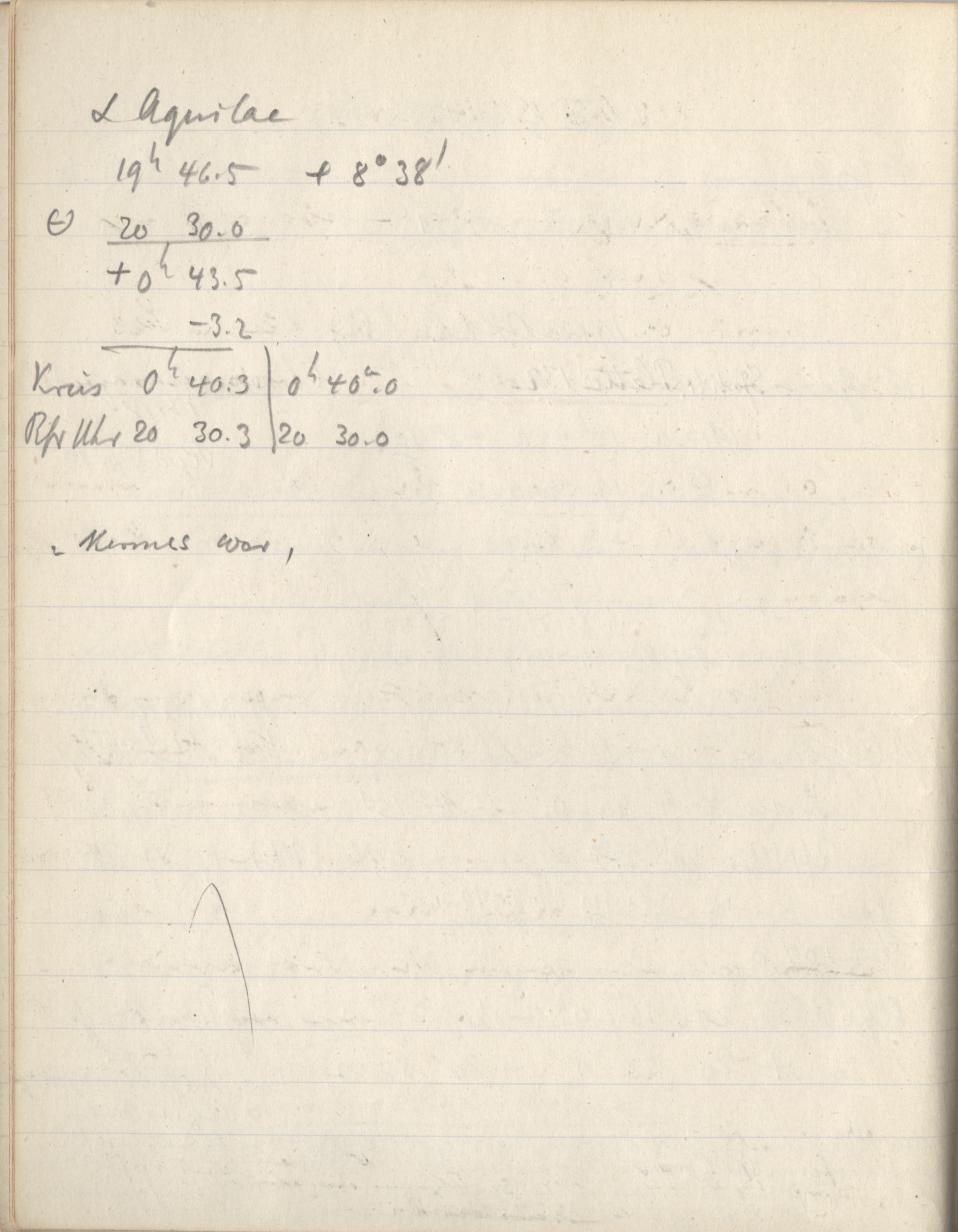 α Aquilae
19ʰ 46.5 + 8° 38'
Θ 20 30.0
+ 0ʰ 43.5
-3.2
Kreis 0ʰ 40.3 | 0ʰ 40ᵐ.0
Rfr Uhr 20 30.3 | 20 30.0
war,